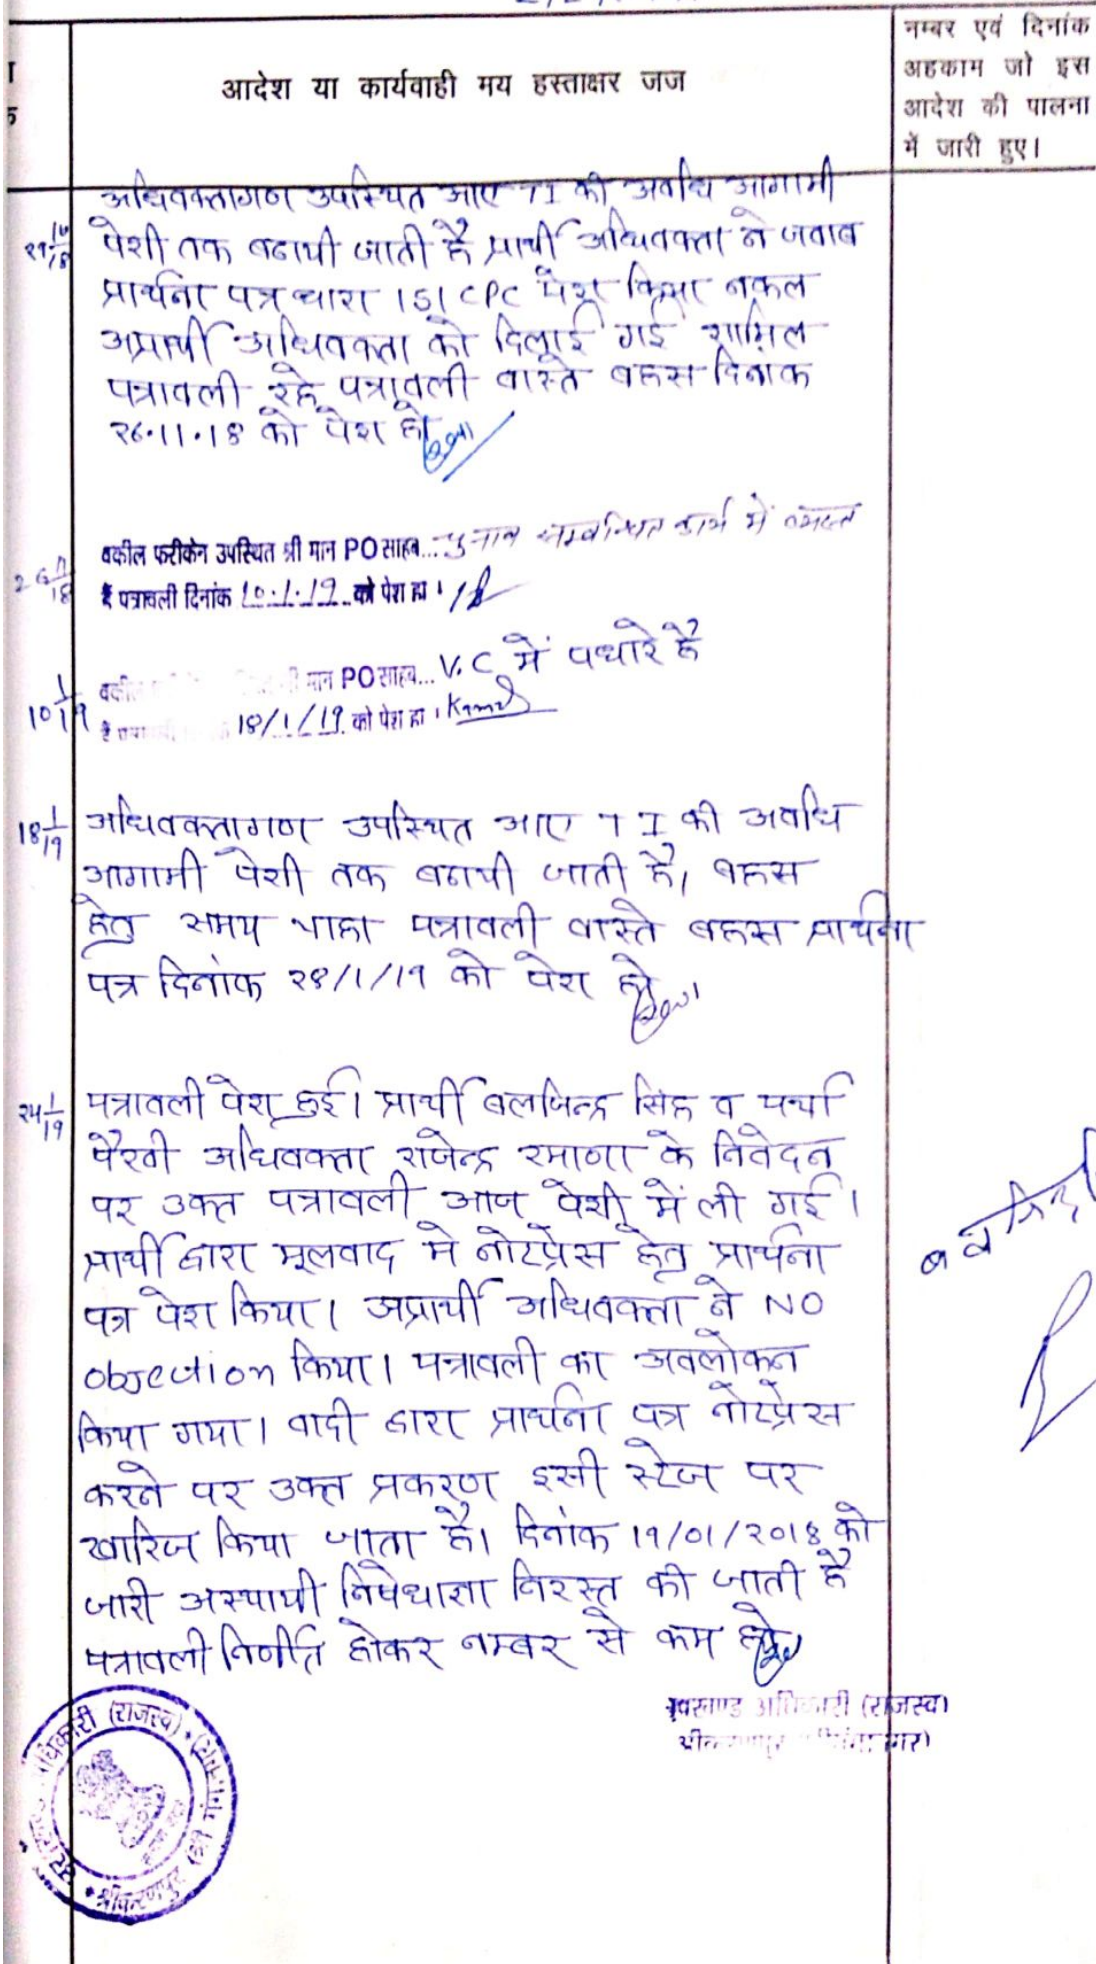 आदेश या कार्यवाही मय हस्ताक्षर जज
नम्बर एवं दिनांक
अहकाम जो इस
आदेश की पालना
में जारी हुए।
अधिवक्तागण उपस्थित आए TI की अवधि आगामी
पेशी तक बढायी जाती है प्रार्थी अधिवक्ता ने जवाब
प्रार्थना पत्र धारा 151 CPC पेश किया नकल
अप्रार्थी अधिवक्ता को दिलाई गई शामिल
पत्रावली रहे पत्रावली वास्ते बहस दिनांक
२६.11.18 को पेश हो
26 11/18
वकील फरीकेन उपस्थित श्री मान PO साहब... चुनाव सम्बन्धित कार्य में व्यस्त
है पत्रावली दिनांक 10.1.19 को पेश हो।
10 1/19
वकील मान PO साहब... V.C में पधारे है
है 18/1/19 को पेश हो।
18 1/19
अधिवक्तागण उपस्थित आए TI की अवधि
आगामी पेशी तक बढायी जाती है, बहस
हेतु समय चाहा पत्रावली वास्ते बहस प्रार्थना
पत्र दिनांक २8/1/19 को पेश हो
२4 1/19
पत्रावली पेश हुई। प्रार्थी बलजिन्द्र सिंह व पर्चा
पैरवी अधिवक्ता राजेन्द्र रमाणा के निवेदन
पर उक्त पत्रावली आज पेशी में ली गई।
प्रार्थी द्वारा मूलवाद मे नोटप्रेस हेतु प्रार्थना
पत्र पेश किया। अप्रार्थी अधिवक्ता ने NO
objection किया। पत्रावली का अवलोकन
किया गया। वादी द्वारा प्रार्थना पत्र नोटप्रेस
करने पर उक्त प्रकरण इसी स्टेज पर
खारिज किया जाता है। दिनांक 19/01/२018 को
जारी अस्थायी निषेधाज्ञा निरस्त की जाती है
पत्रावली निर्णीत होकर नम्बर से कम हो
उपखण्ड अधिकारी (राजस्व)
श्रीकरणपुर (श्रीगंगानगर)